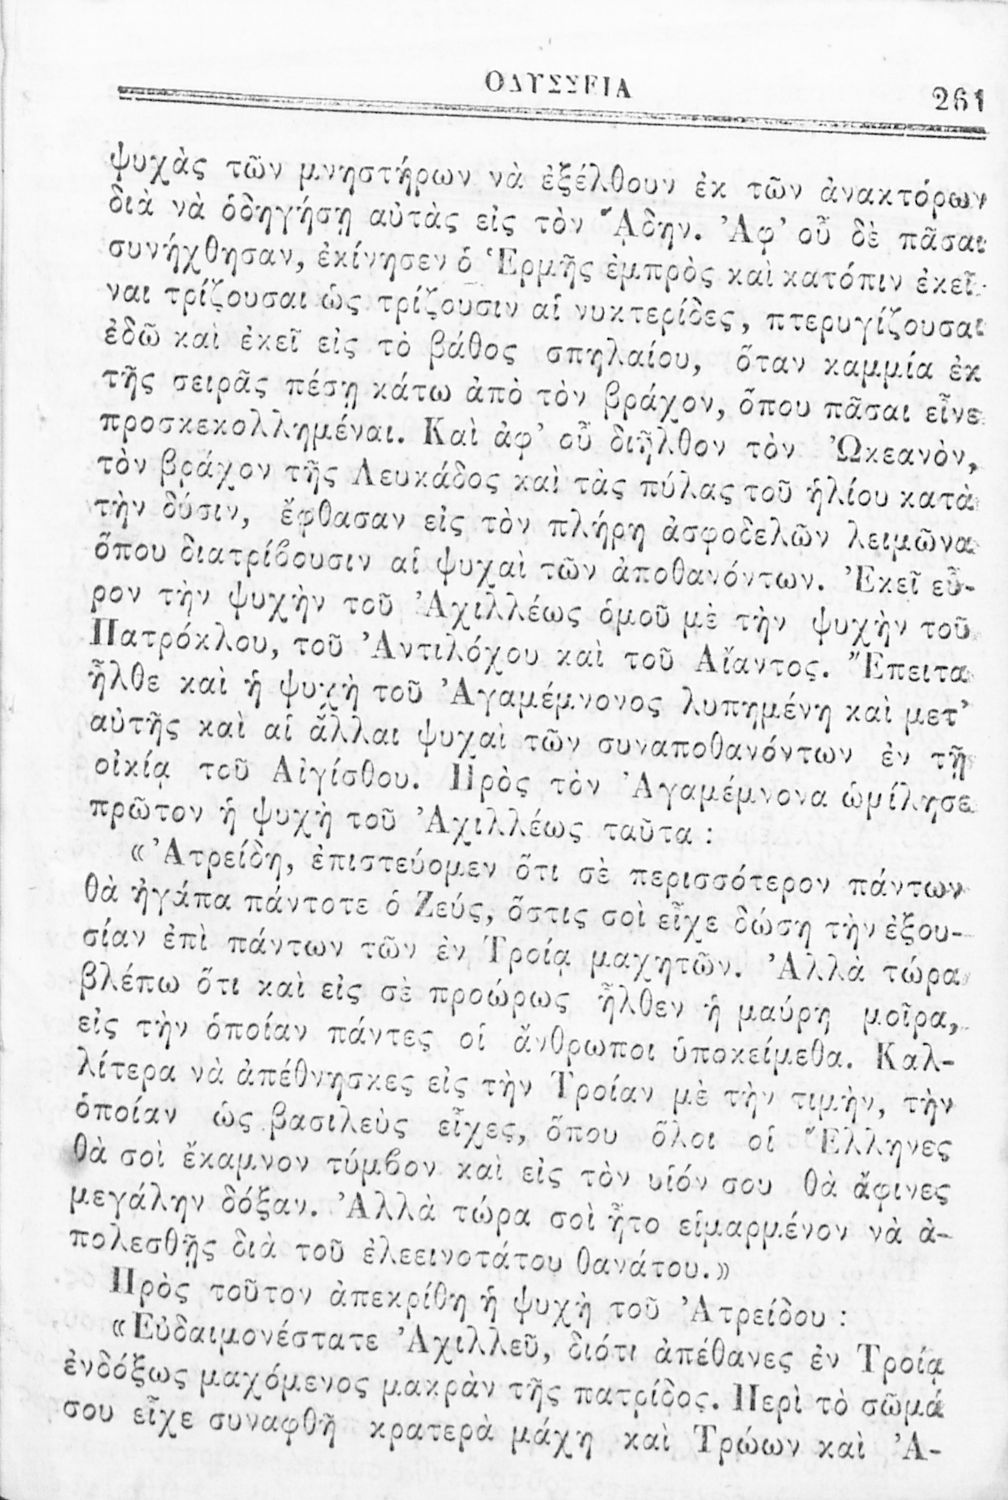 ΟΔΥΣΣΕΙΑ 261
ψυχὰς τῶν μνηστήρων νὰ ἐξέλθουν ἐκ τῶν ἀνακτόρων
διὰ νὰ ὁδηγήσῃ αὐτὰς εἰς τὸν ᾍδην. Ἀφ’ οὗ δὲ πᾶσαι
συνήχθησαν, ἐκίνησεν ὁ Ἑρμῆς ἐμπρὸς καὶ κατόπιν ἐκεῖ-
ναι τρίζουσαι ὡς τρίζουσιν αἱ νυκτερίδες, πτερυγίζουσαι
ἐδῶ καὶ ἐκεῖ εἰς τὸ βάθος σπηλαίου, ὅταν καμμία ἐκ
τῆς σειρᾶς πέσῃ κάτω ἀπὸ τὸν βράχον, ὅπου πᾶσαι εἶνε
προσκεκολλημέναι. Καὶ ἀφ’ οὗ διῆλθον τὸν Ὠκεανὸν,
τὸν βράχον τῆς Λευκάδος καὶ τὰς πύλας τοῦ ἡλίου κατὰ
τὴν δύσιν, ἔφθασαν εἰς τὸν πλήρη ἀσφοδελῶν λειμῶνα
ὅπου διατρίβουσιν αἱ ψυχαὶ τῶν ἀποθανόντων. Ἐκεῖ εὗ-
ρον τὴν ψυχὴν τοῦ Ἀχιλλέως ὁμοῦ μὲ τὴν ψυχὴν τοῦ
Πατρόκλου, τοῦ Ἀντιλόχου καὶ τοῦ Αἴαντος. Ἔπειτα
ἦλθε καὶ ἡ ψυχὴ τοῦ Ἀγαμέμνονος λυπημένη καὶ μετ’
αὐτῆς καὶ αἱ ἄλλαι ψυχαὶ τῶν συναποθανόντων ἐν τῇ
οἰκίᾳ τοῦ Αἰγίσθου. Πρὸς τὸν Ἀγαμέμνονα ὡμίλησε
πρῶτον ἡ ψυχὴ τοῦ Ἀχιλλέως ταῦτα :
«Ἀτρείδη, ἐπιστεύομεν ὅτι σὲ περισσότερον πάντων
θὰ ἠγάπα πάντοτε ὁ Ζεύς, ὅστις σοὶ εἶχε δώσῃ τὴν ἐξου-
σίαν ἐπὶ πάντων τῶν ἐν Τροίᾳ μαχητῶν. Ἀλλὰ τώρα
βλέπω ὅτι καὶ εἰς σὲ προώρως ἦλθεν ἡ μαύρη μοῖρα,
εἰς τὴν ὁποίαν πάντες οἱ ἄνθρωποι ὑποκείμεθα. Καλ-
λίτερα νὰ ἀπέθνησκες εἰς τὴν Τροίαν μὲ τὴν τιμὴν, τὴν
ὁποίαν ὡς βασιλεὺς εἶχες, ὅπου ὅλοι οἱ Ἕλληνες
θὰ σοὶ ἔκαμνον τύμβον καὶ εἰς τὸν υἱόν σου θὰ ἄφινες
μεγάλην δόξαν. Ἀλλὰ τώρα σοὶ ἦτο εἱμαρμένον νὰ ἀ-
πολεσθῇς διὰ τοῦ ἐλεεινοτάτου θανάτου.»
Πρὸς τοῦτον ἀπεκρίθη ἡ ψυχὴ τοῦ Ἀτρείδου :
«Εὐδαιμονέστατε Ἀχιλλεῦ, διότι ἀπέθανες ἐν Τροίᾳ
ἐνδόξως μαχόμενος μακρὰν τῆς πατρίδος. Περὶ τὸ σῶμά
σου εἶχε συναφθῆ κρατερὰ μάχη καὶ Τρώων καὶ Ἀ-